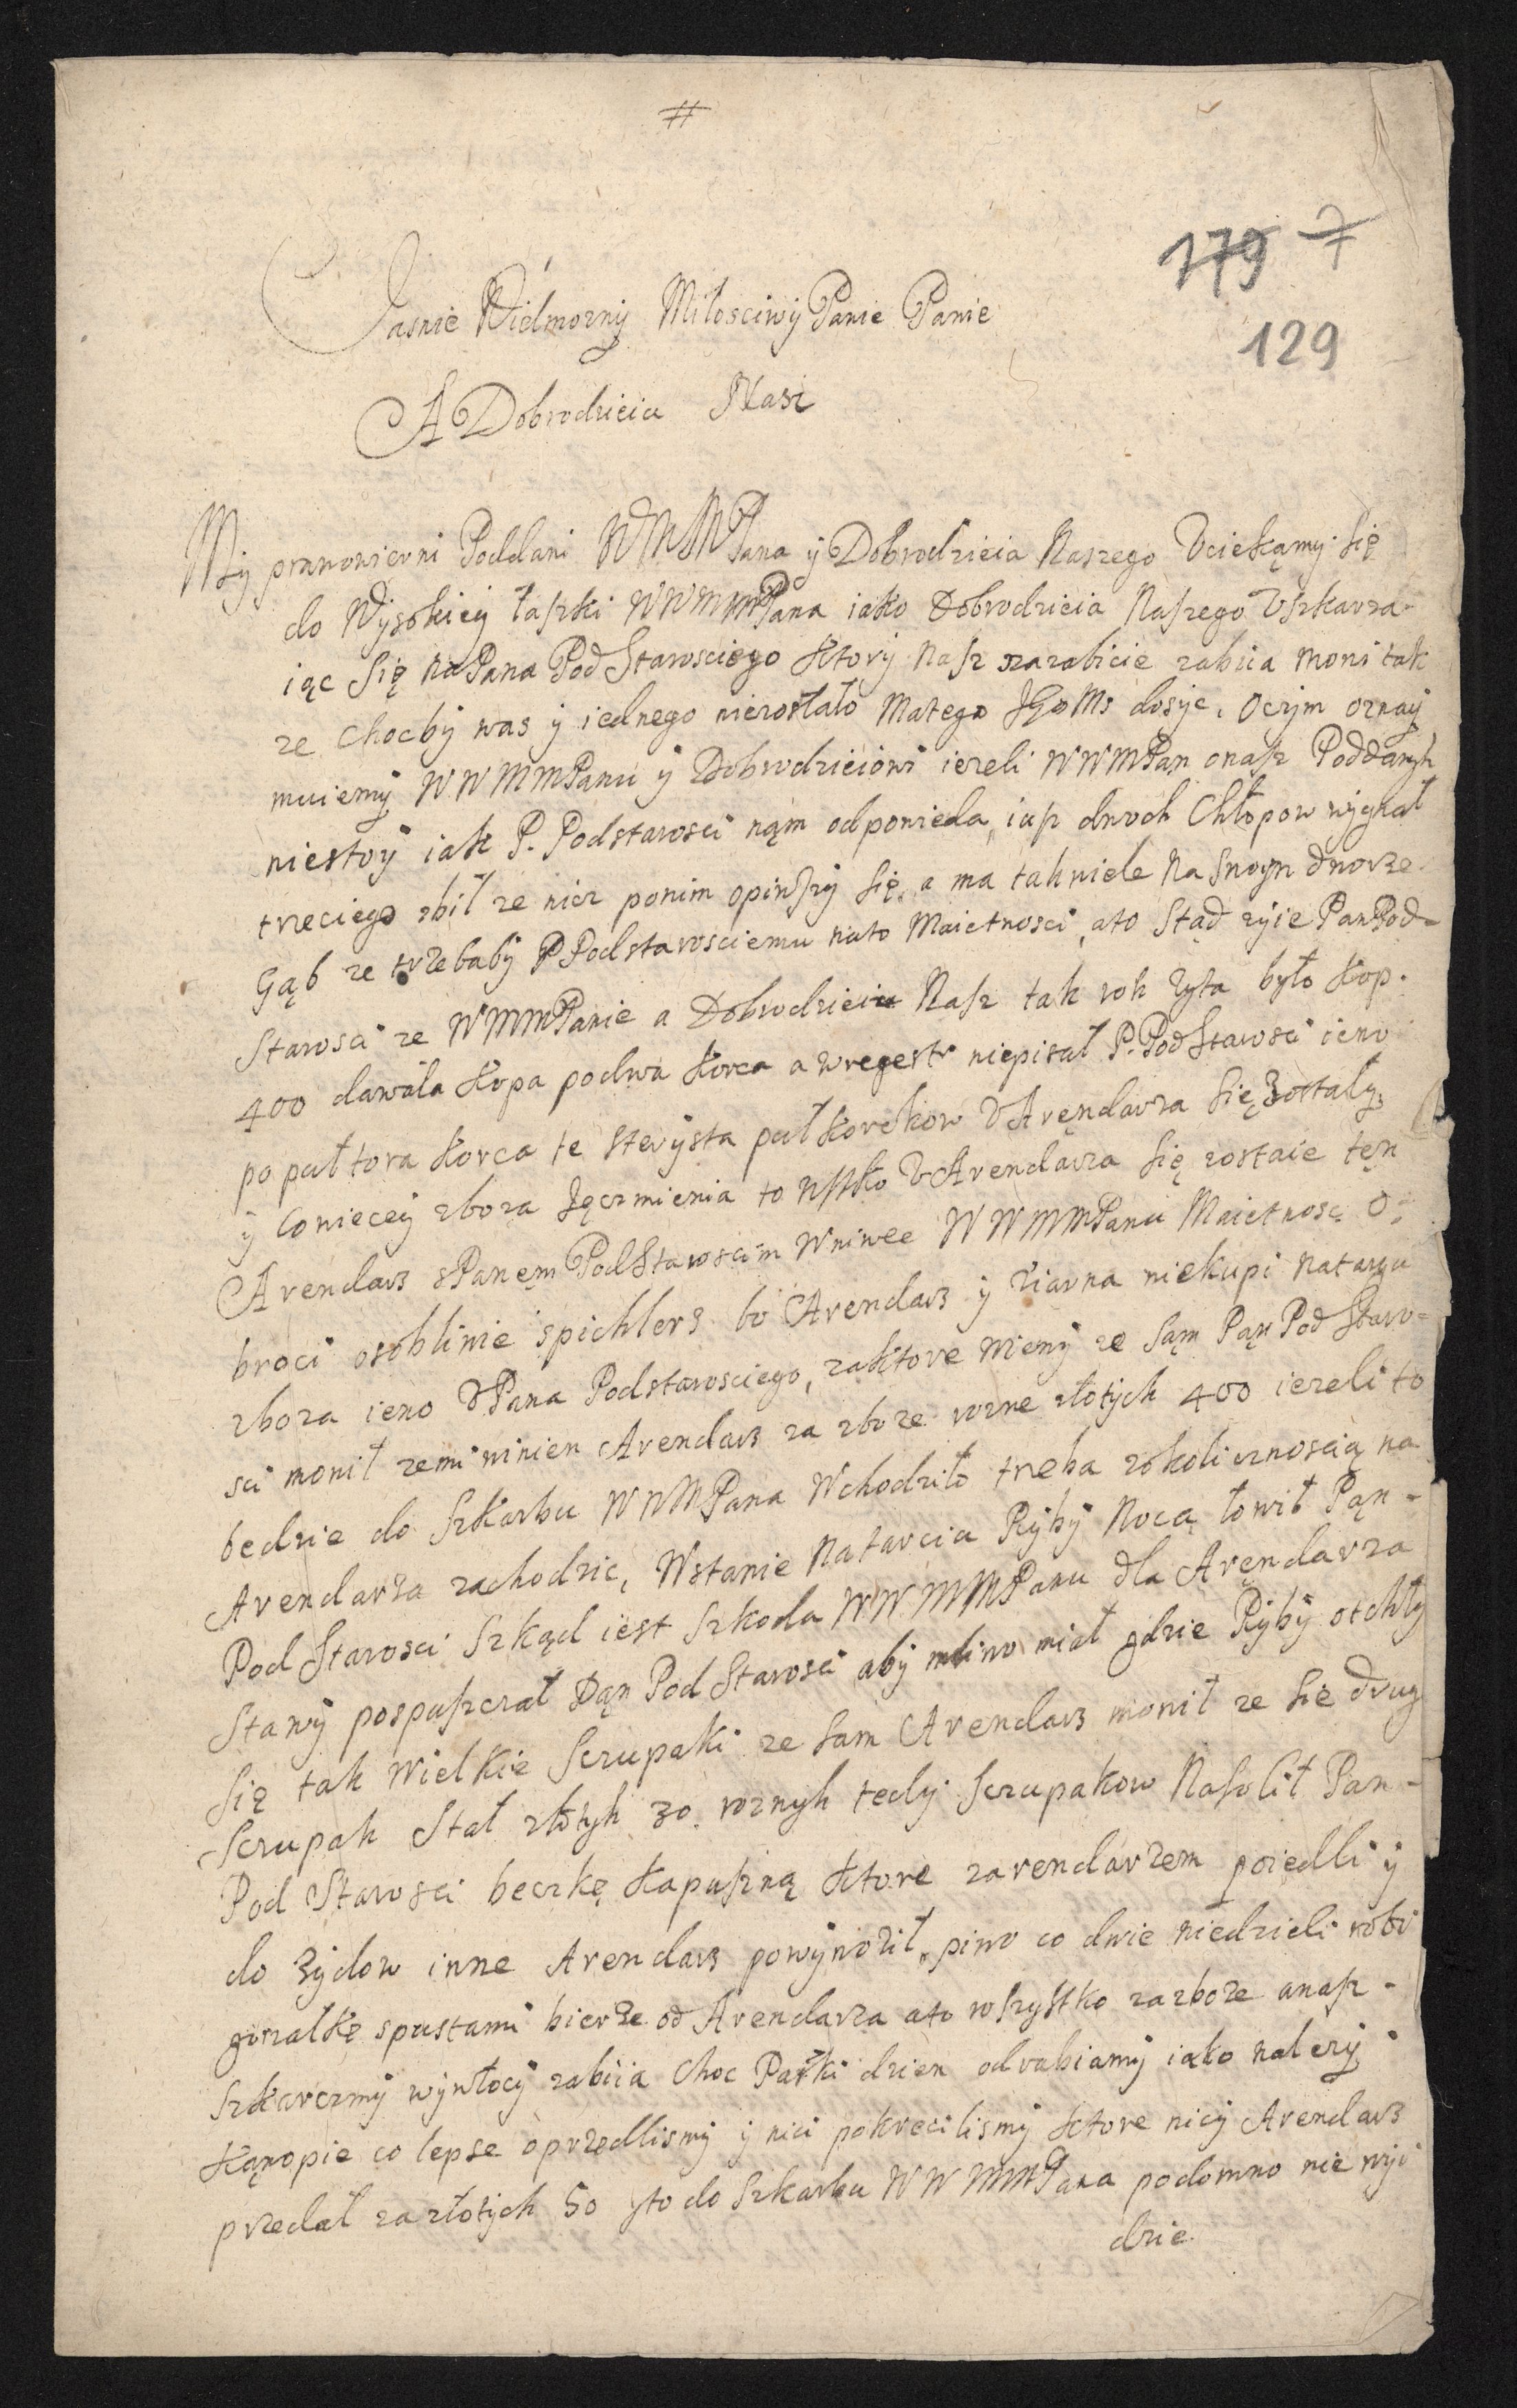 #
179 7
129
Jasnie Wielmozny Miłosciwy Panie Panie
A Dobrodzieiu Nasz
My prawowierni Poddani WMMPana ÿ Dobrodzieia Naszego Uciekąmy się
do Wysokieÿ łaszki WWMMPana iako Dobrodzieia Naszego Uszkarza-
iąc się na Pana PodStarosciego Ktorÿ nasz zazabicie zabiia mowi tak
ze chocbÿ was ÿ iednego niezostało Małego JGoMs dosyc, Oczÿm oznaÿ
muiemÿ WWMMPanu ÿ Dobrodzieiowi iezeli WWMPan onasz Poddanyh
niestoÿ iak P. Podstarosci nąm odpowieda, iusz dwoch Chłopow wÿgnał
trzeciego zbił ze nicz ponim opinszÿ się, a ma takwiele na swoÿm dworze
Gąb ze trzebabÿ PPodstarosciemu nato Maietnosci, ato Stąd zÿie PanPod-
Starosci ze WMMPanie a Dobrodzieiu Nasz tak rok zÿta było Kop.
400 dawała Kopa podwa Korca a wregestr niepisał P. PodStarosci ieno
po pułtora Korca te sterÿsta pułkorckow UArędarza się zostałÿ
ÿ cowieceÿ zboza Jęczmienia to wszÿtko UArendarza się zostaie tęn
Arendarz sPanęm PodStaroscim wniwee WWMMPanu Maietnosc O-
broci osobliwie spichlerz bo Arendarz ÿ ziarna niekupi natargu
zboza ieno UPana Podstarosciego, zaktore wiemÿ ze sąm Pąn PodStaro-
sci mowił zemi winien Arendarz za zboze rozne złotÿch 400 iezeli to
bedzie do Szkarbu WWMPana Wchodziło treba zokolicznoscią na
Arendarza zachodzic, Wstawie Natarcia Rÿbÿ Nocą łowił Pąn-
PodStarosci Szkąd iest Szkoda WWMMPanu dla Arędarza
Stawÿ pospuszczał Pąn PodStarosci abÿ mliwo miał gdzie Rÿbÿ otchłÿ
się tak wielkie Sczupaki ze sam Arendarz mowił ze sie drug
Sczupak Stał złotÿh 30. roznyh tedÿ Sczupakow Nasolił Pan-
Pod Starosci beczkę Kapuszną Ktore zarendarzem poiedli ÿ
do zÿdow inne Arendarz powÿwoził, piwo co dwie niedzieli robi
gorzałkę spustami bierze od Arendarza ato wszystko zazboze anasz-
szkarczmÿ wÿwłocÿ zabiia Choc Pański dzien odrabiamÿ iako nalezÿ
Kąnopie co lepse oprzedlismÿ ÿ nici pokrecilismÿ Ktore nicÿ Arendarz
przedał zazłotÿch 50 ÿto do Szkarbu WWMMPana podomno nie wÿi
dzie